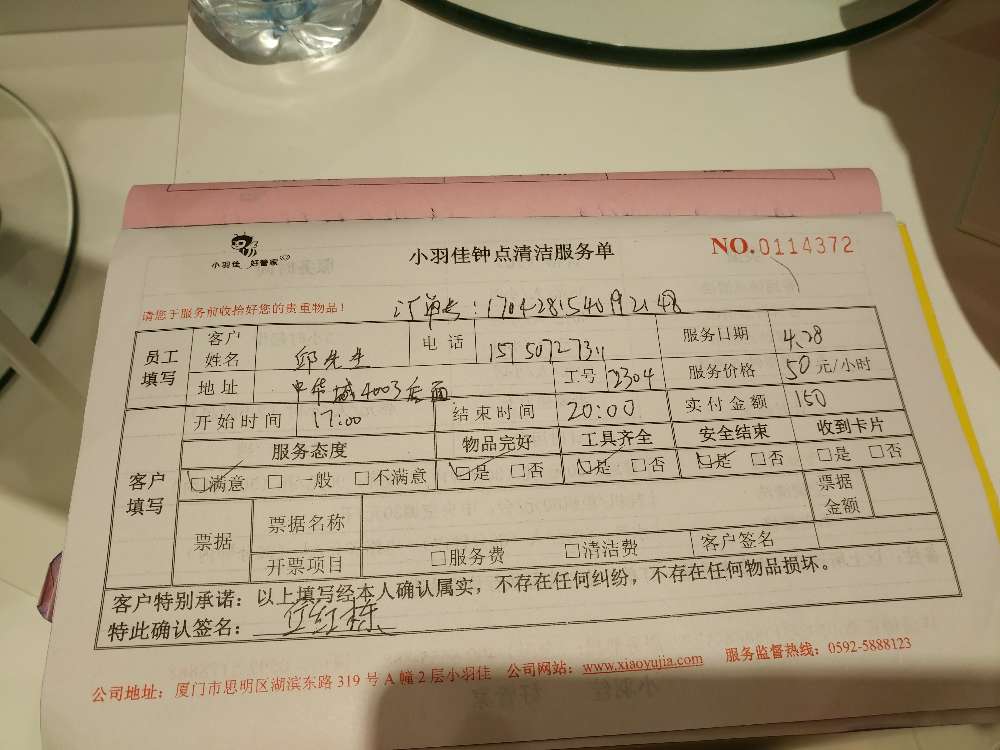 小羽佳 好管家
小羽佳钟点清洁服务单
NO.0114372
请您于服务前收拾好您的贵重物品！
订单号：1704281540192148
员工填写 客户姓名 邱先生 电话 15750727311 服务日期 4.28
地址 中华城4003后面 工号 72304 服务价格 50元/小时
客户填写 开始时间 17:00 结束时间 20:00 实付金额 150
服务态度 物品完好 工具齐全 安全结束 收到卡片
□满意 □一般 □不满意 □是 □否 □是 □否 □是 □否 □是 □否
票据 票据名称 票据金额
开票项目 □服务费 □清洁费 客户签名
客户特别承诺：以上填写经本人确认属实，不存在任何纠纷，不存在任何物品损坏。
特此确认签名：
公司地址：厦门市思明区湖滨东路319号A幢2层小羽佳 公司网站：www.xiaoyujia.com 服务监督热线：0592-5888123